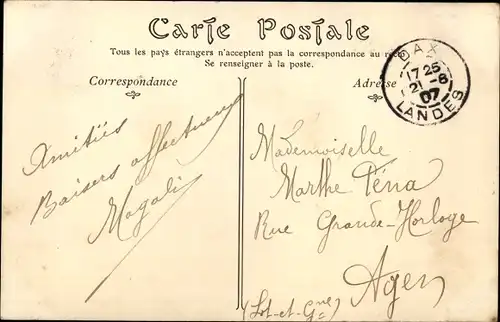 Carte Postale
Tous les pays étrangers n'acceptent pas la correspondance au
Se renseigner à la poste.
Correspondance
Adresse
DAX
17 25
21 -8
07
LANDES
Amitiés
Baisers affectueux
Magali
Mademoiselle
Marthe Téna
Rue Grande-Horloge
Agen
(Lot-et-Gne)